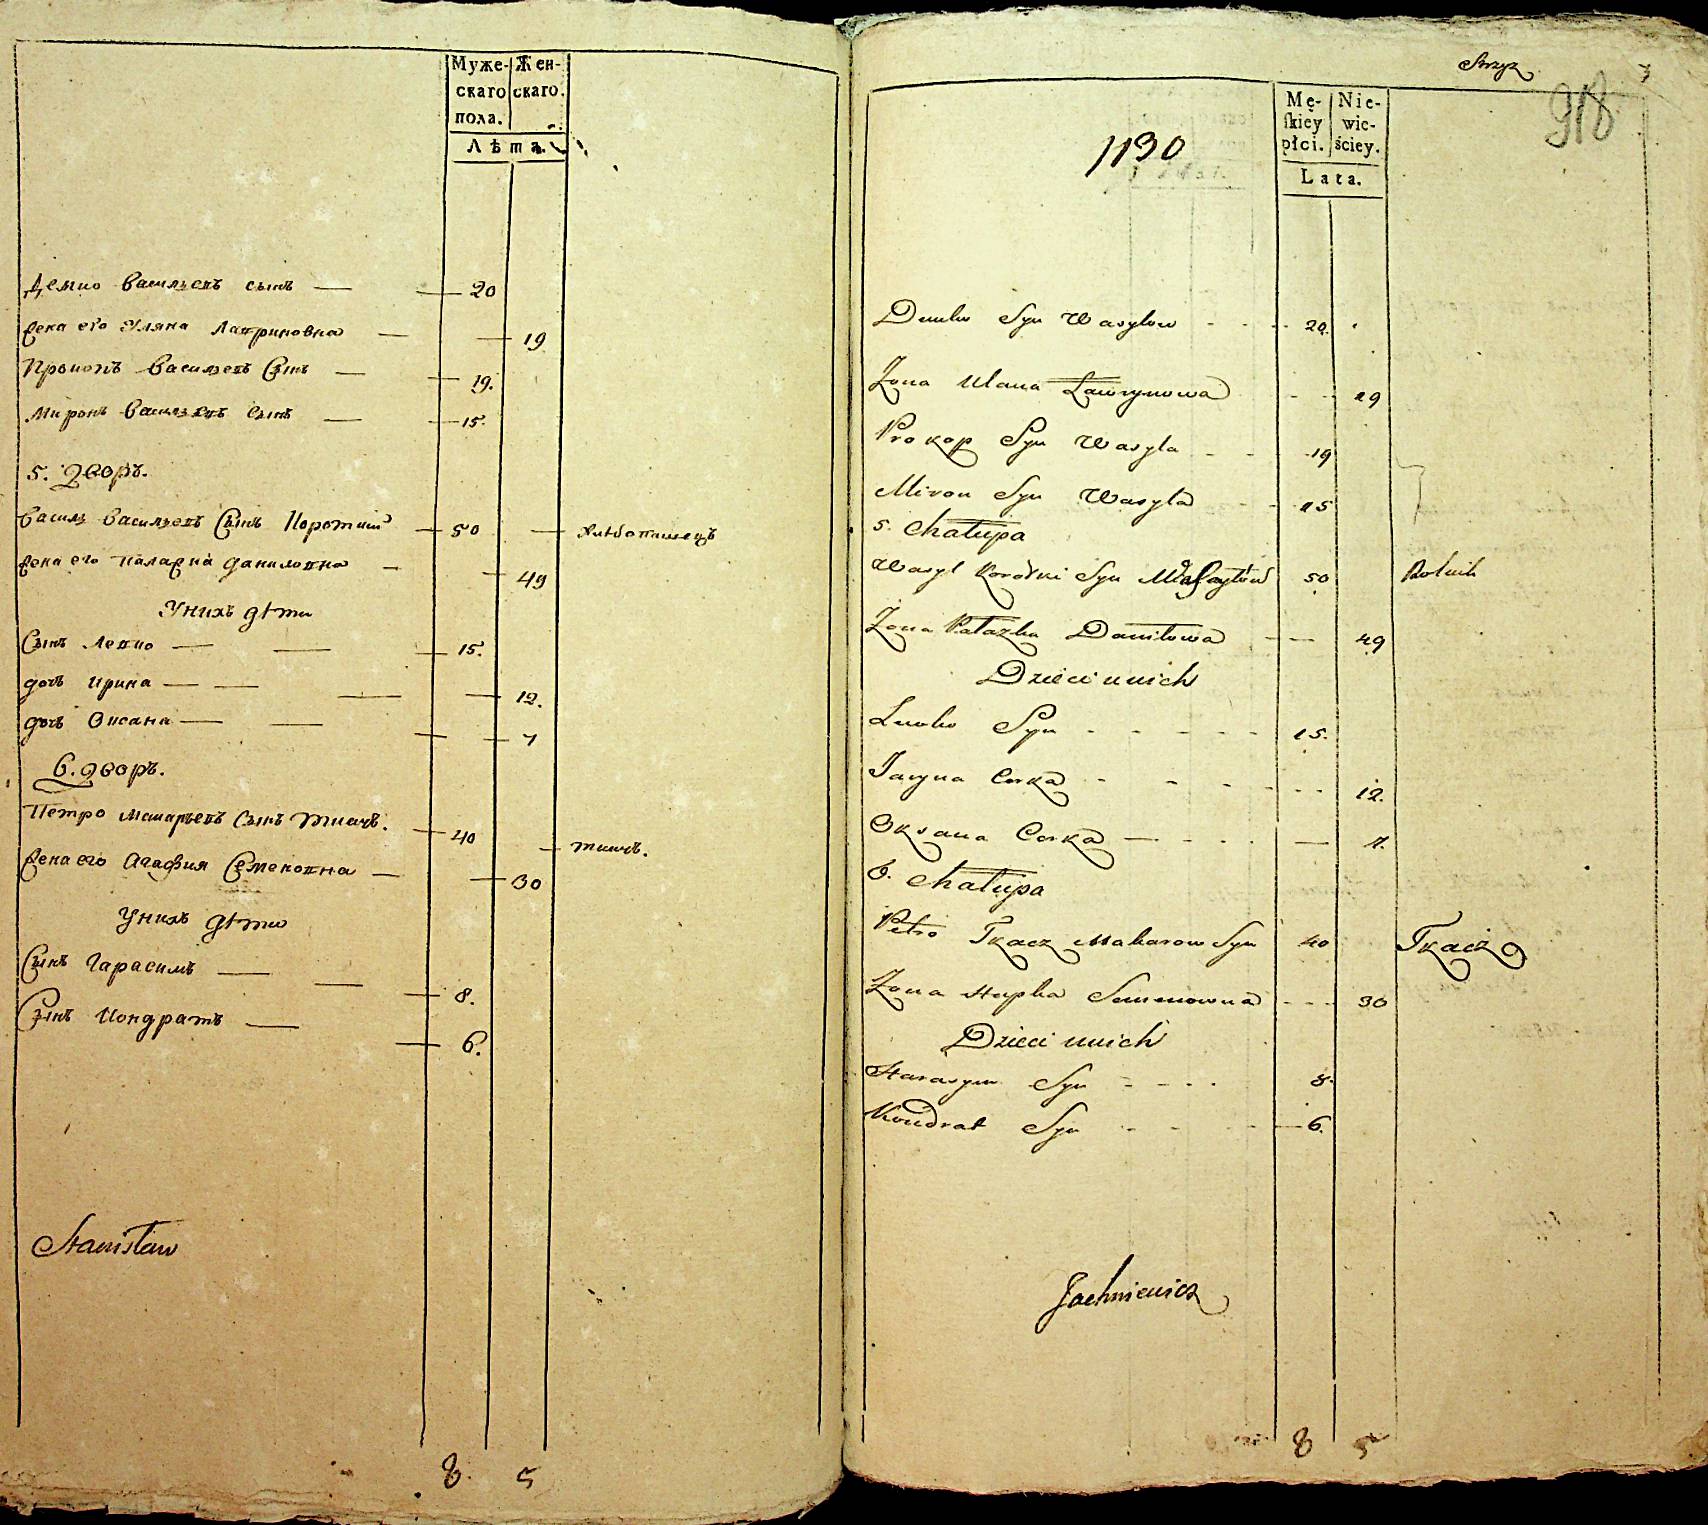 Муже- Жен-
скаго скаго.
пола.
Лѣта.
Демко Васильевъ сынъ — 20
Жена его Уляна Лавриновна — 19
Прокопъ Васильевъ Сынъ — 19.
Миронъ Васильевъ Сынъ — 15.
5. Дворъ.
Василь Васильевъ Сынъ Короткий — 50 — Хлѣбопашецъ
Жена его Палажка Даниловна — 49
У нихъ дѣти
Сынъ Левко — 15.
дочь Ирина — 12.
дочь Оксана — 7
6. дворъ.
Петро Макарьевъ Сынъ Ткачъ. — 40 — ткачъ.
Жена его Агафия Семеновна — 30
У нихъ дѣти
Сынъ Гарасимъ — 8.
Сынъ Кондратъ — 6.
Stanisław
8. 5
Strzyż
918
1130
Mę- Nie-
ſkiey wie-
płci. ściey.
Lata.
Demko Syn Wasylow 20.
Zona Ulana Ławrynowa 19
Prokop Syn Wasyla 19
Miron Syn Wasyla 15
5. Chałupa
Wasyl Korotki Syn 50 Rolnik
Zona Pałazka Daniłowa 49
Dzieci u nich
Lewko Syn 15.
Jaryna Corka 12.
Oksana Corka — 7.
6. Chałupa
Petro Tkacz Makarow Syn 40 Tkacz
Zona Hapka Semenowna 30
Dzieci u nich
Harasym Syn 8.
Kondrat Syn 6.
Jachniewicz
8 5